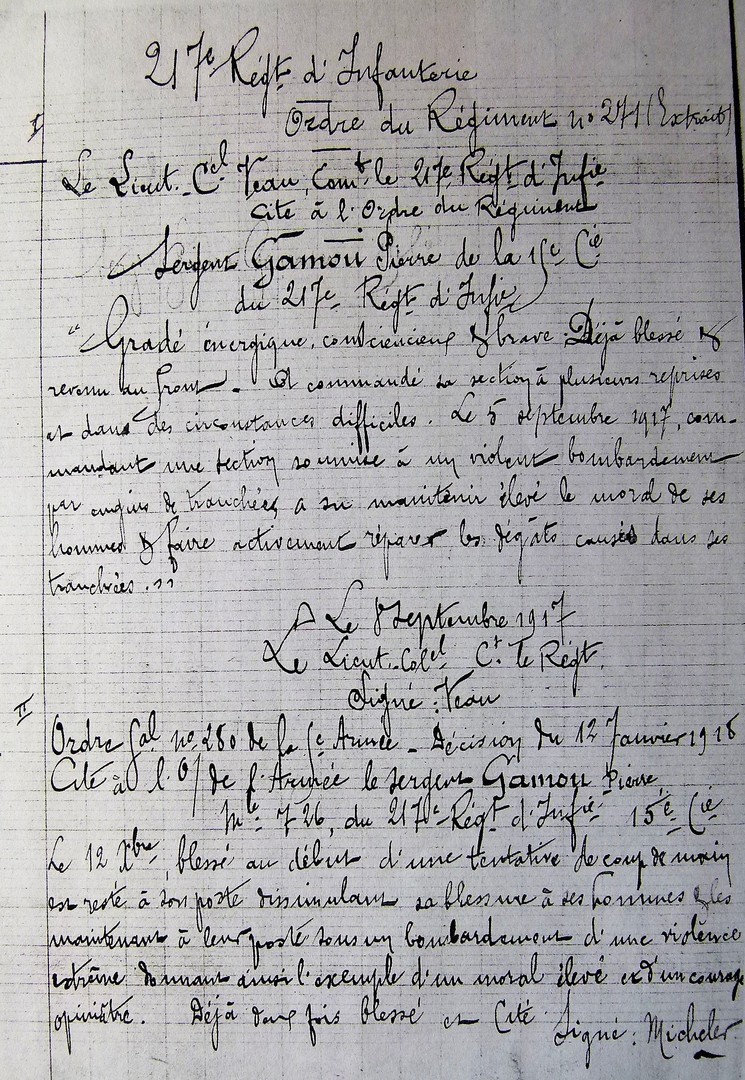 217e Régt d'Infanterie
I
Ordre du Régiment no 271 (Extrait)
Le Lieut. Cel Veau, Comt le 217e Régt d'Infie
Cite à l'Ordre du Régiment
Sergent Gamou Pierre de la 15e Cie
du 217e Régt d'Infie
"Gradé énergique, consciencieux & brave. Déjà blessé &
revenu au front. A commandé sa section à plusieurs reprises
et dans des circonstances difficiles. Le 5 septembre 1917, com-
mandant une section soumise à un violent bombardement
par engins de tranchées, a su maintenir élevé le moral de ses
hommes & faire activement réparer les dégâts causés dans ses
tranchées."
Le 8 septembre 1917
Le Lieut-Colel Ct le Régt.
Signé : Veau
II
Ordre Gal no 280 de la Armée - Décision du 12 Janvier 1918
Cité à l'O/ de l'Armée le sergent Gamou Pierre,
Mle 726, du 217e Régt d'Infie 15e Cie
Le 12 Xbre, blessé au début d'une tentative de coup de main
est resté à son poste dissimulant sa blessure à ses hommes & les
maintenant à leur poste sous un bombardement d'une violence
extrême donnant ainsi l'exemple d'un moral élevé et d'un courage
opiniâtre. Déjà deux fois blessé et Cité. Signé : Micheler